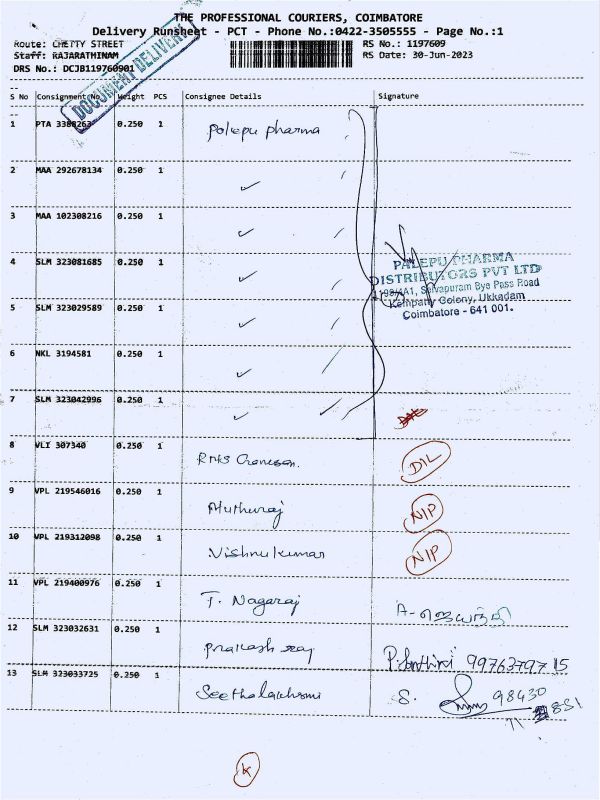 THE PROFESSIONAL COURIERS, COIMBATORE
Delivery Runsheet - PCT - Phone No.:0422-3505555 - Page No.:1
Route: CHETTY STREET RS No.: 1197609
Staff: RAJARATHINAM RS Date: 30-Jun-2023
DRS No.: DCJB119760901
DOCUMENT DELIVERY
S No Consignment No Weight PCS Consignee Details Signature
1 PTA 0.250 1 Palepu pharma
2 MAA 292678134 0.250 1 ✓
3 MAA 102308216 0.250 1 ✓
4 SLM 323081685 0.250 1 ✓
PALEPU PHARMA
DISTRIBUTORS PVT LTD
Selvapuram Bye Pass Road
Kempaty Colony, Ukkadam
Coimbatore - 641 001.
5 SLM 323029589 0.250 1 ✓
6 NKL 3194581 0.250 1 ✓
7 SLM 323042996 0.250 1 ✓
8 VLI 307340 0.250 1 D/L
9 VPL 219546016 0.250 1 Muthuraj NIP
10 VPL 219312098 0.250 1 Vishnu kumar NIP
11 VPL 219400976 0.250 1 T. Nagaraj A-ஜெயந்தி
12 SLM 323032631 0.250 1 Prakash raj P. Santhini 9976379715
13 SLM 323033725 0.250 1 Seethalakshmi S. 98430
851